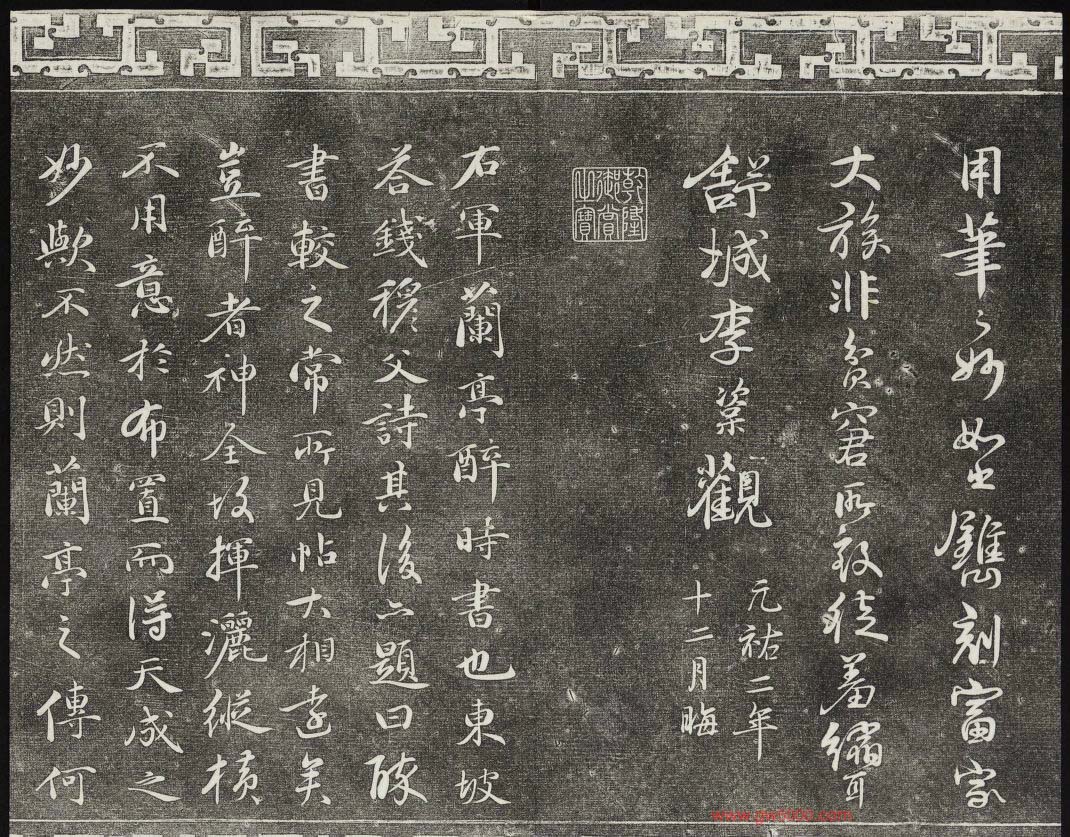 用筆之妙如此鐫刻富家
大族非貧窘所致徒羞縮耳
舒城李楶觀
元祐二年
十二月晦
乾隆
御賞
之寶
右軍蘭亭醉時書也東坡
答錢穆父詩其後亦題曰醉
書較之常所見帖大相遠矣
豈醉者神全故揮灑縱橫
不用意於布置而得天成之
妙歟不然則蘭亭之傳何